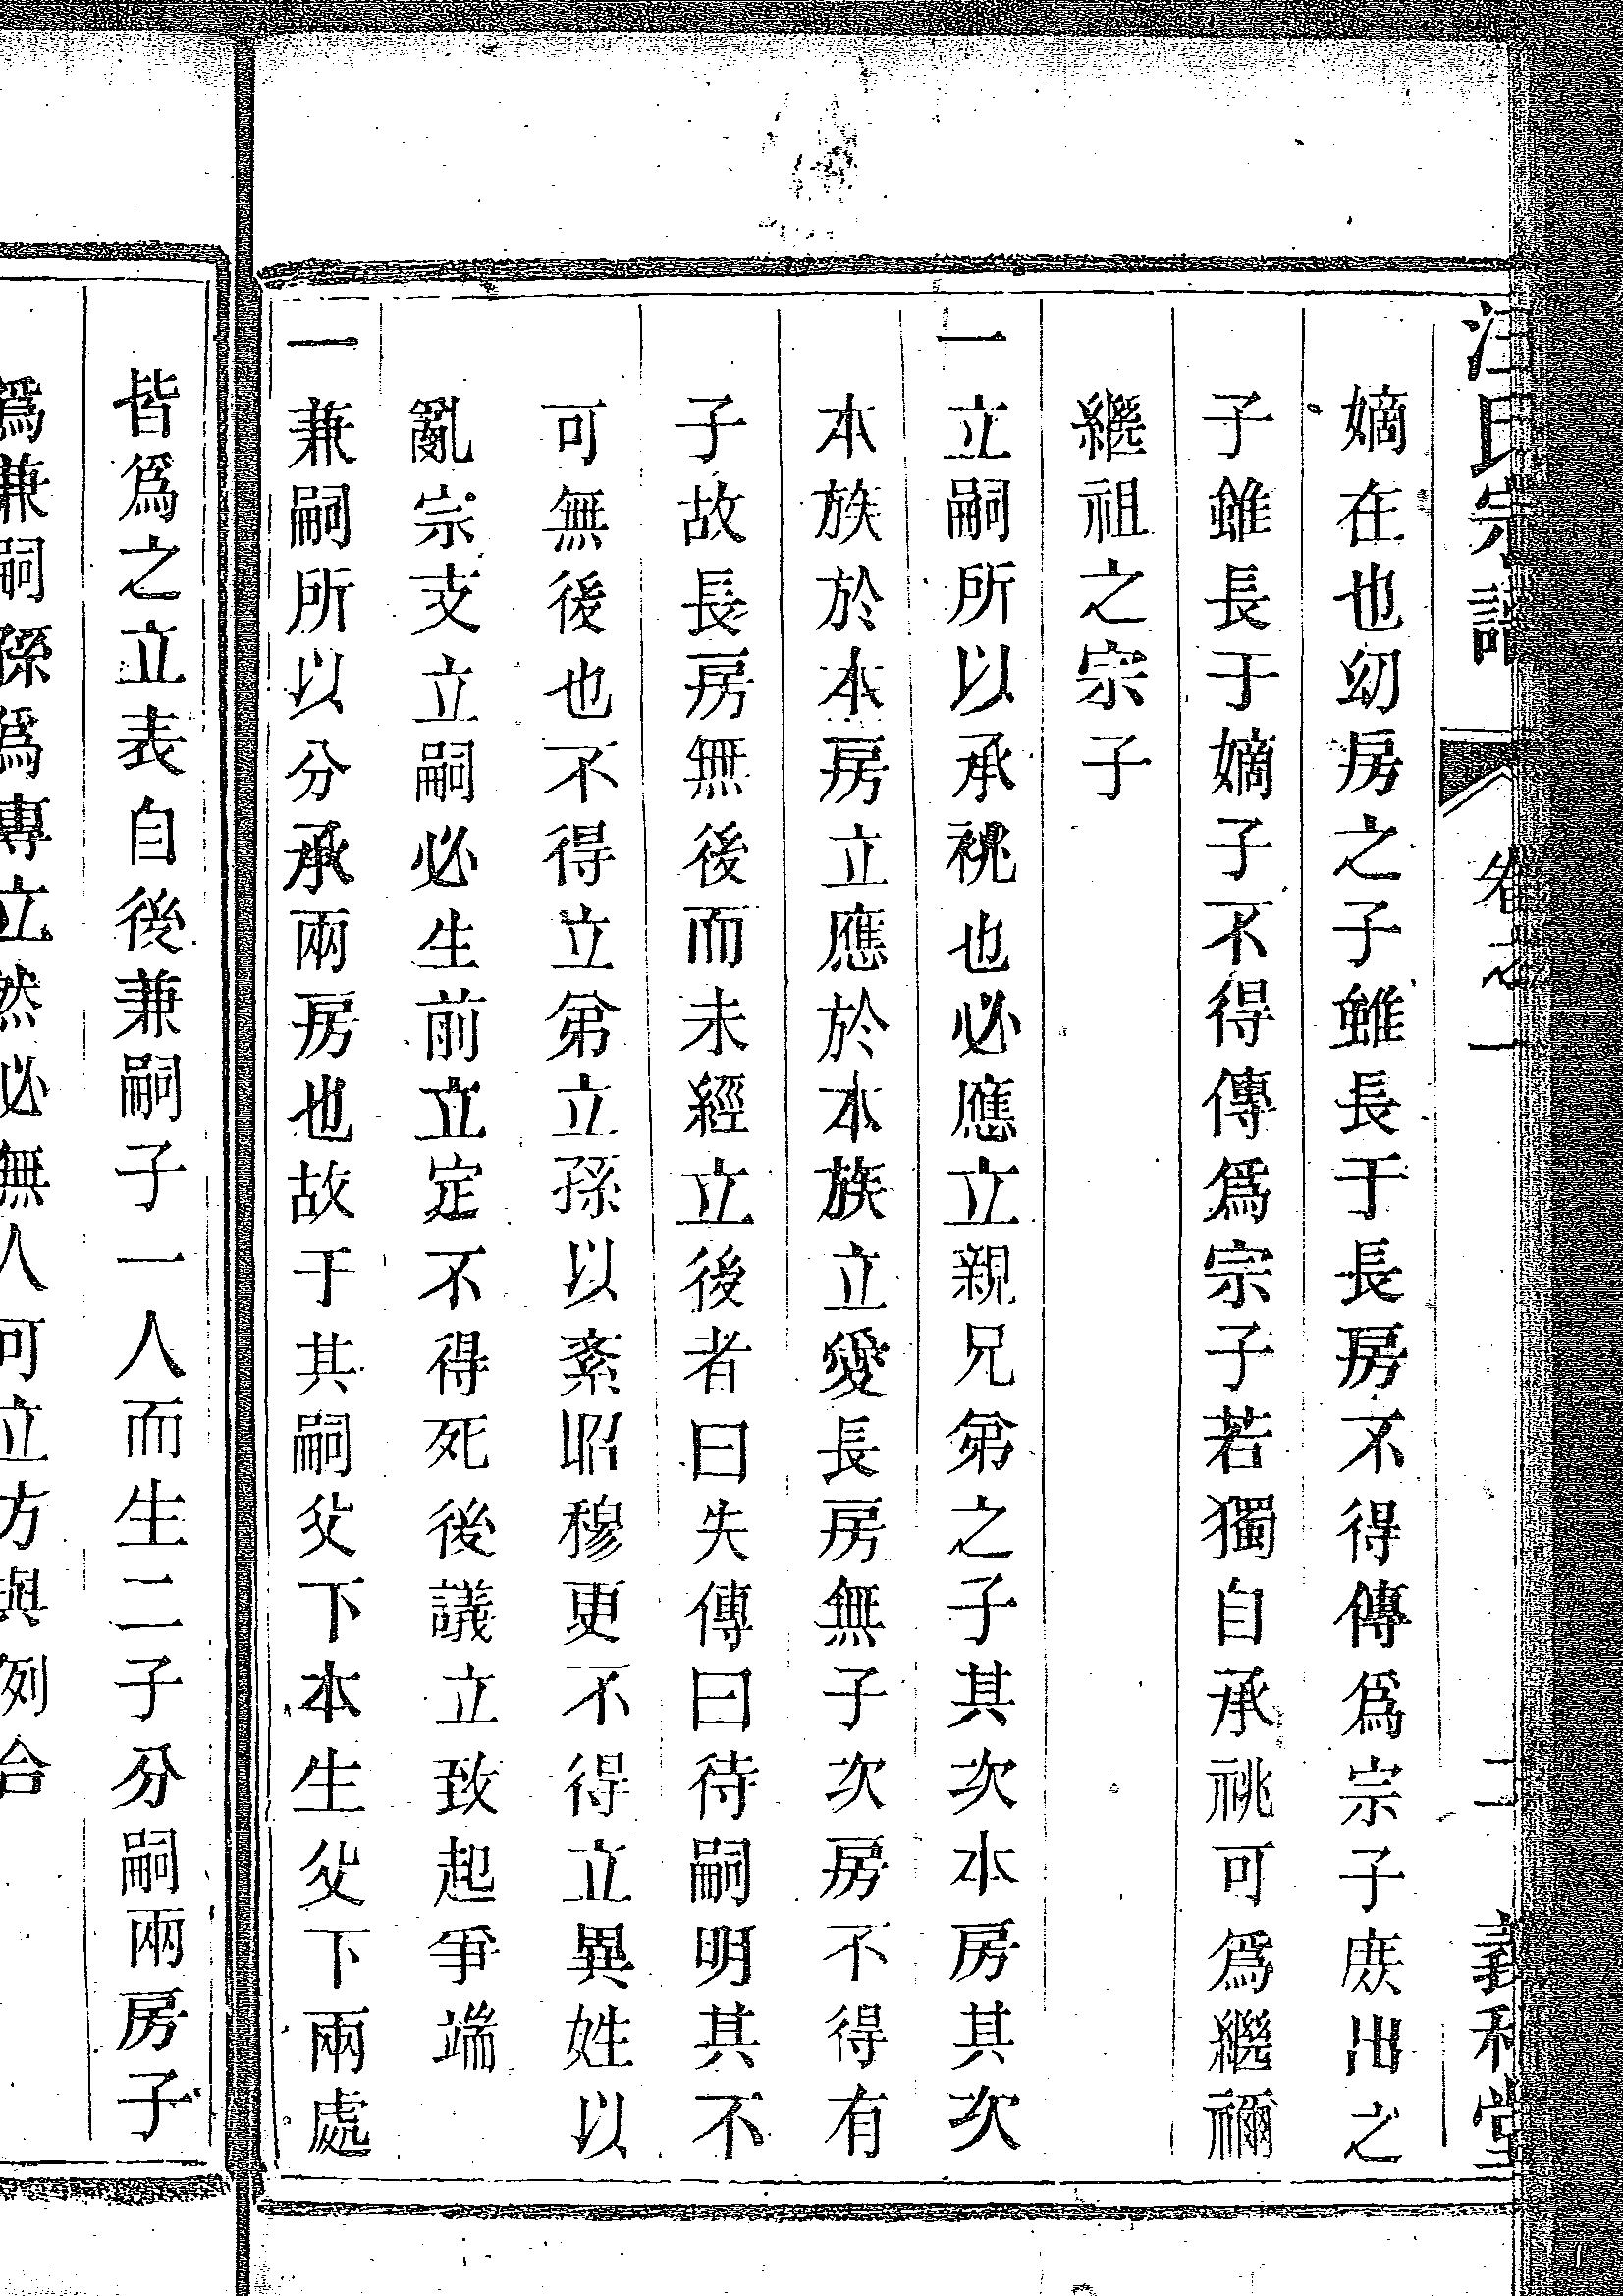 汪氏宗譜 卷之一 二 義和堂
嫡在也幼房之子雖長于長房不得傳爲宗子庶出之
子雖長于嫡子不得傳爲宗子若獨自承祧可爲繼禰
繼祖之宗子
一立嗣所以承祧也必應立親兄弟之子其次本房其次
本族於本房立應於本族立愛長房無子次房不得有
子故長房無後而未經立後者曰失傳曰待嗣明其不
可無後也不得立弟立孫以紊昭穆更不得立異姓以
亂宗支立嗣必生前立定不得死後議立致起爭端
一兼嗣所以分承兩房也故于其嗣父下本生父下兩處
皆爲之立表自後兼嗣子一人而生二子分嗣兩房子
爲兼嗣孫爲專立然必無人可立方與例合